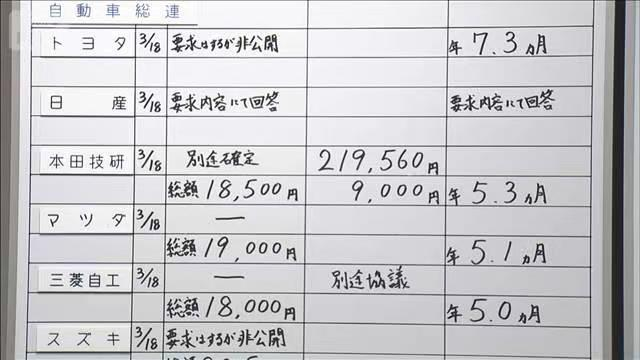 自動車総連
トヨタ 3/18 要求はするが非公開 年7.3ヵ月
日産 3/18 要求内容にて回答 要求内容にて回答
本田技研 3/18 別途確定 219,560円
総額18,500円 9,000円 年5.3ヵ月
マツダ 3/18 ー
総額19,000円 年5.1ヵ月
三菱自工 3/18 ー 別途協議
総額18,000円 年5.0ヵ月
スズキ 3/18 要求はするが非公開